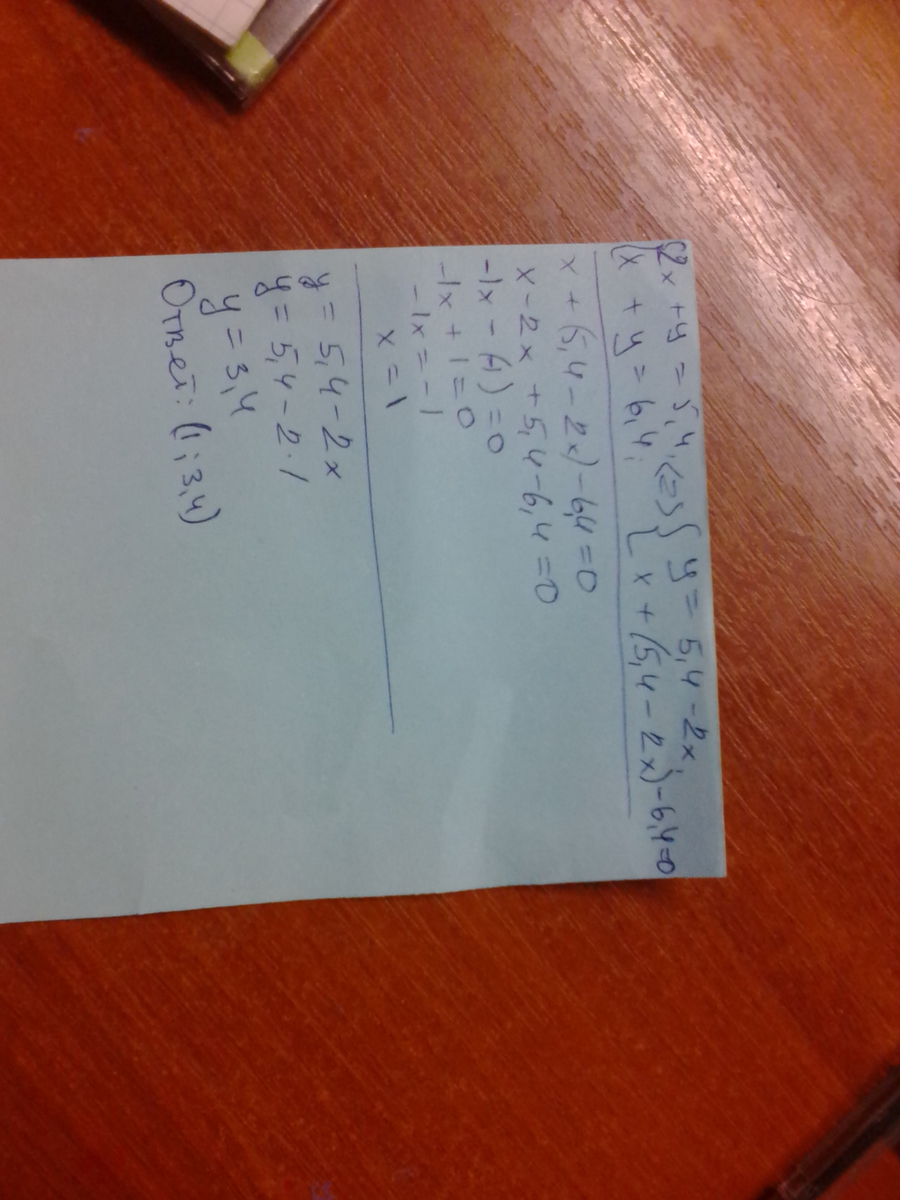 {2x + y = 5,4, <=> { y = 5,4 - 2x,
{x + y = 6,4; { x + (5,4 - 2x) - 6,4 = 0
x + (5,4 - 2x) - 6,4 = 0
x - 2x + 5,4 - 6,4 = 0
-1x - (1) = 0
-1x + 1 = 0
-1x = -1
x = 1
y = 5,4 - 2x
y = 5,4 - 2·1
y = 3,4
Ответ: (1; 3,4)